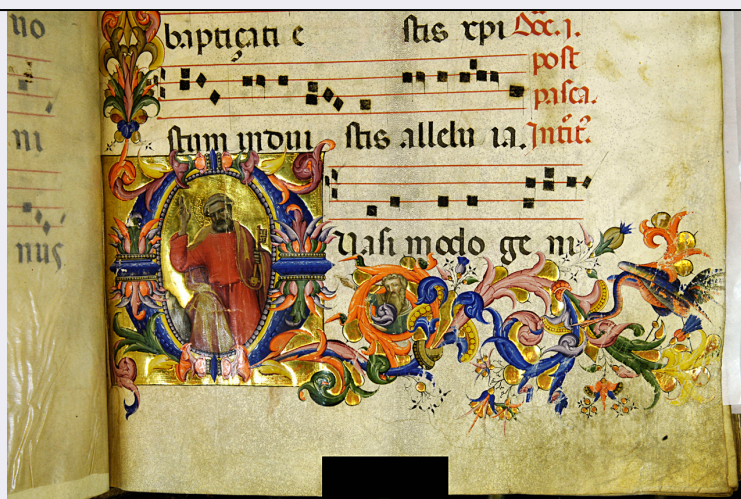 no
ni
nus
baptiçati e stis xpi Doc. j.
post
pasca.
stum indui stis allelu ia. Intit.
Uasi modo ge ni